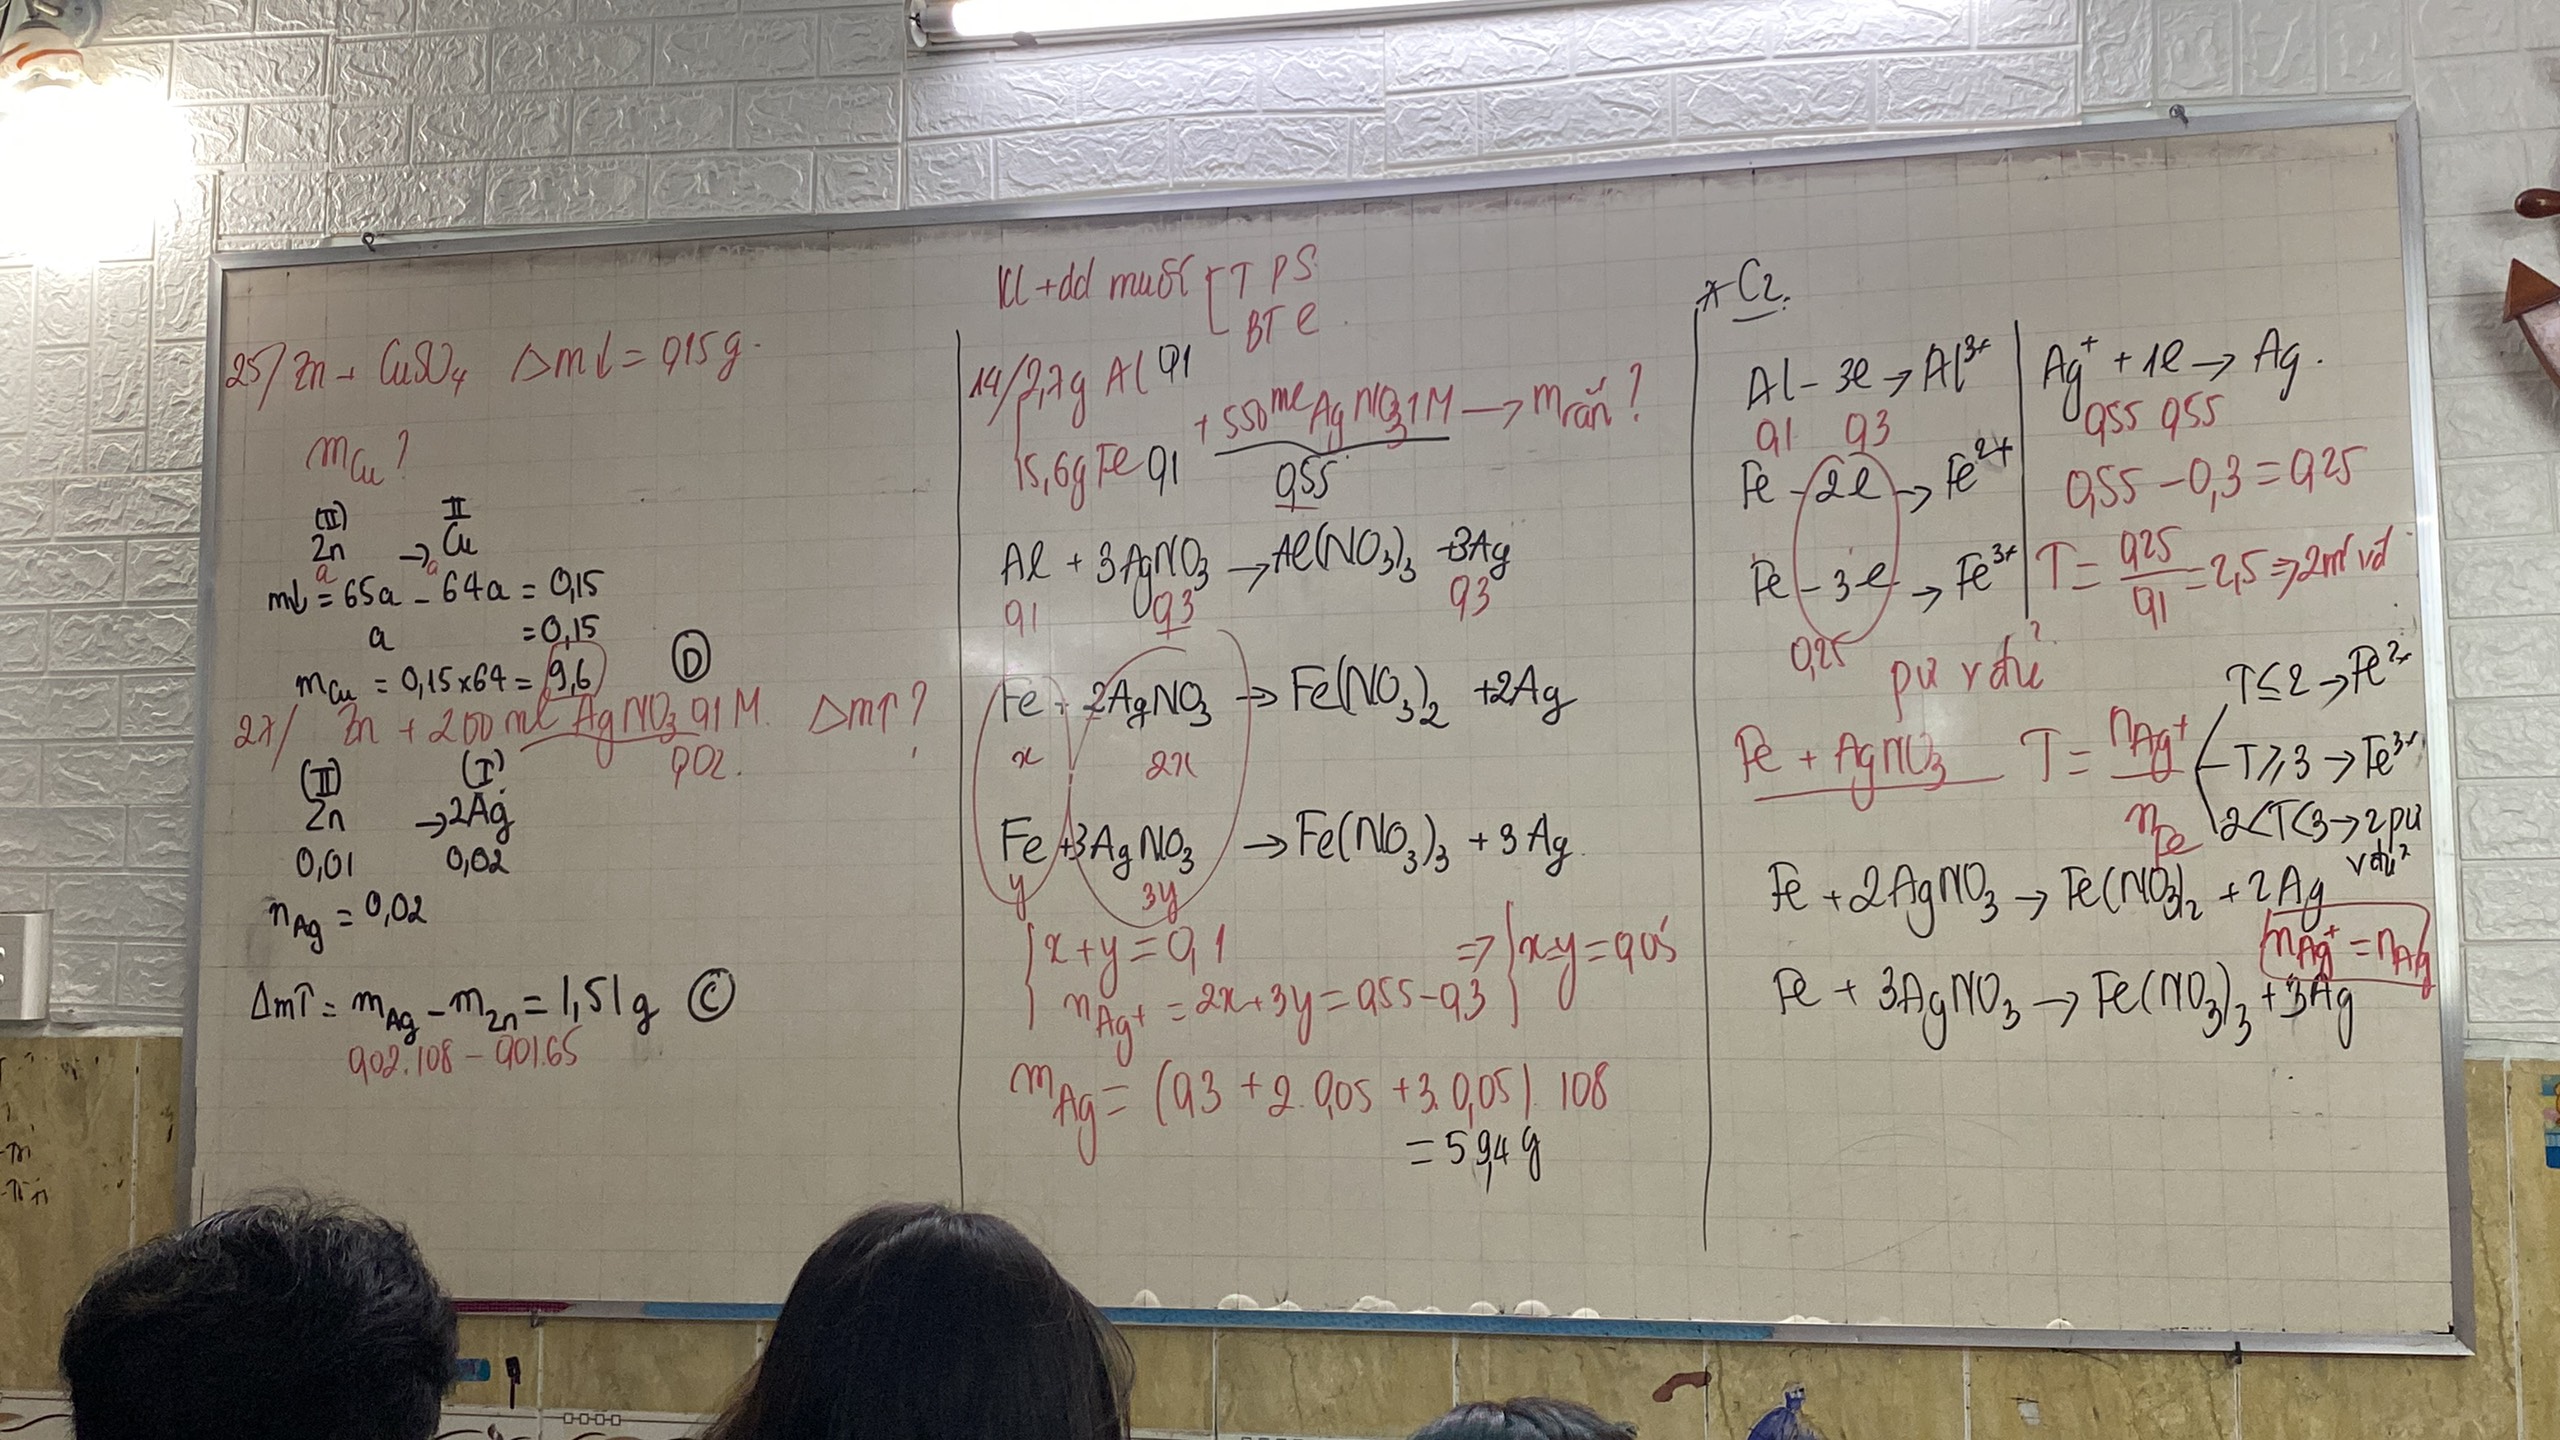 25/ Zn + CuSO4 Δm↓ = 0,15g.
mCu?
(II) II
Zn → Cu
a a
m↓ = 65a - 64a = 0,15
a = 0,15
mCu = 0,15x64 = 9,6 D
27/ Zn + 200 ml AgNO3 0,1M. Δm↑?
0,02.
(II) (I)
Zn → 2Ag
0,01 0,02
nAg = 0,02
Δm↑ = mAg - mZn = 1,51g C
0,02.108 - 0,01.65
Kl + dd muối [ T P S
BT e.
14/ 2,7g Al 0,1
5,6g Fe 0,1 + 550ml AgNO3 1M → m rắn?
0,55
Al + 3AgNO3 → Al(NO3)3 + 3Ag
0,1 0,3 0,3
Fe + 2AgNO3 → Fe(NO3)2 + 2Ag
x 2x
Fe + 3AgNO3 → Fe(NO3)3 + 3Ag.
y 3y
{ x + y = 0,1 ⇒ { x=y = 0,05
nAg+ = 2x + 3y = 0,55 - 0,3
mAg = (0,3 + 2.0,05 + 3.0,05). 108
= 59,4 g
* C2:
Al - 3e → Al3+ | Ag+ + 1e → Ag.
0,1 0,3 0,55 0,55
Fe - 2e → Fe2+ 0,55 - 0,3 = 0,25
Fe - 3e → Fe3+ T = 0,25/0,1 = 2,5 ⇒ 2 m vđ
0,25 pư vđủ
Fe + AgNO3 T = nAg+/nFe
T ≤ 2 → Fe2+
T ≥ 3 → Fe3+
2<T<3 → 2 pư vđủ
Fe + 2AgNO3 → Fe(NO3)2 + 2Ag
nAg+ = nAg
Fe + 3AgNO3 → Fe(NO3)3 + 3Ag